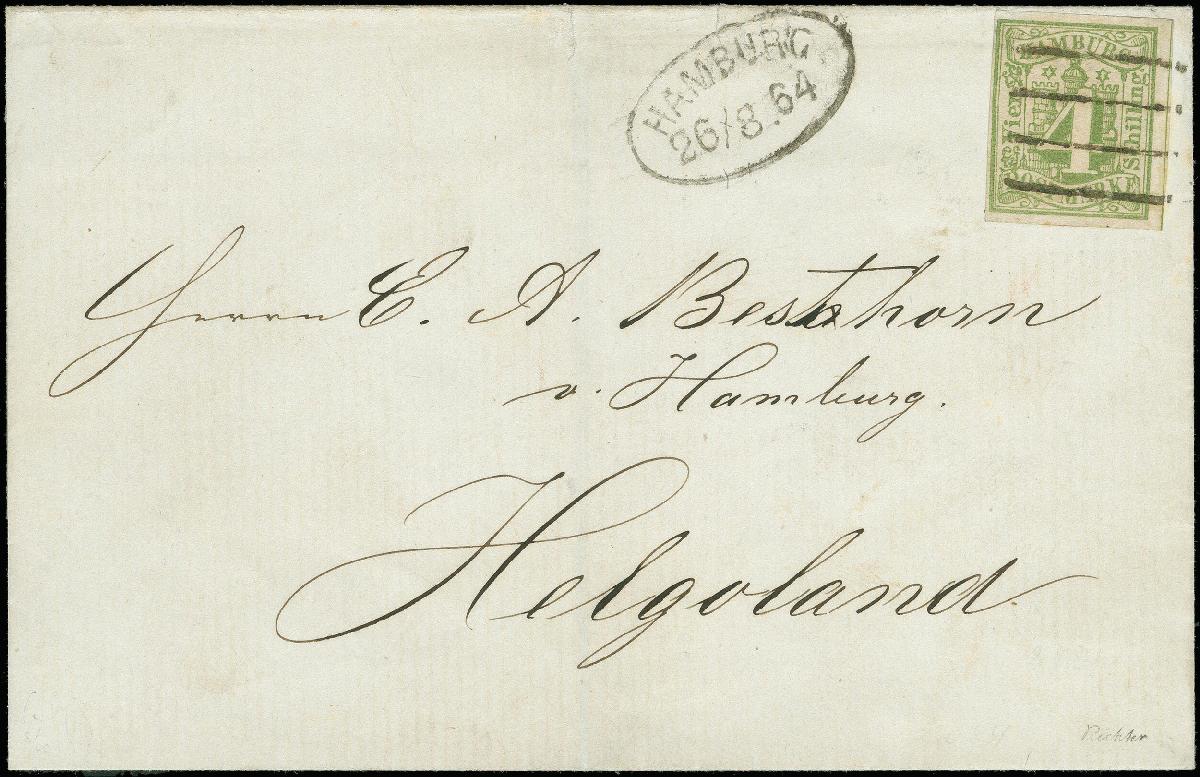 HAMBURG
26/8.64
HAMBURG
Vier
4
Schilling
POSTMARKE
Herrn E. A. Besthorn
v. Hamburg.
Helgoland.
Richter